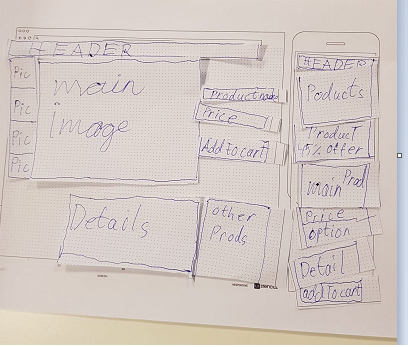 HEADER
Pic
Pic
Pic
Pic
main
image
Product name
Price
Add to cart
Details
other
Prods
HEADER
Poducts
Product
5% offer
main Prod
Price
option
Detail
add To cart